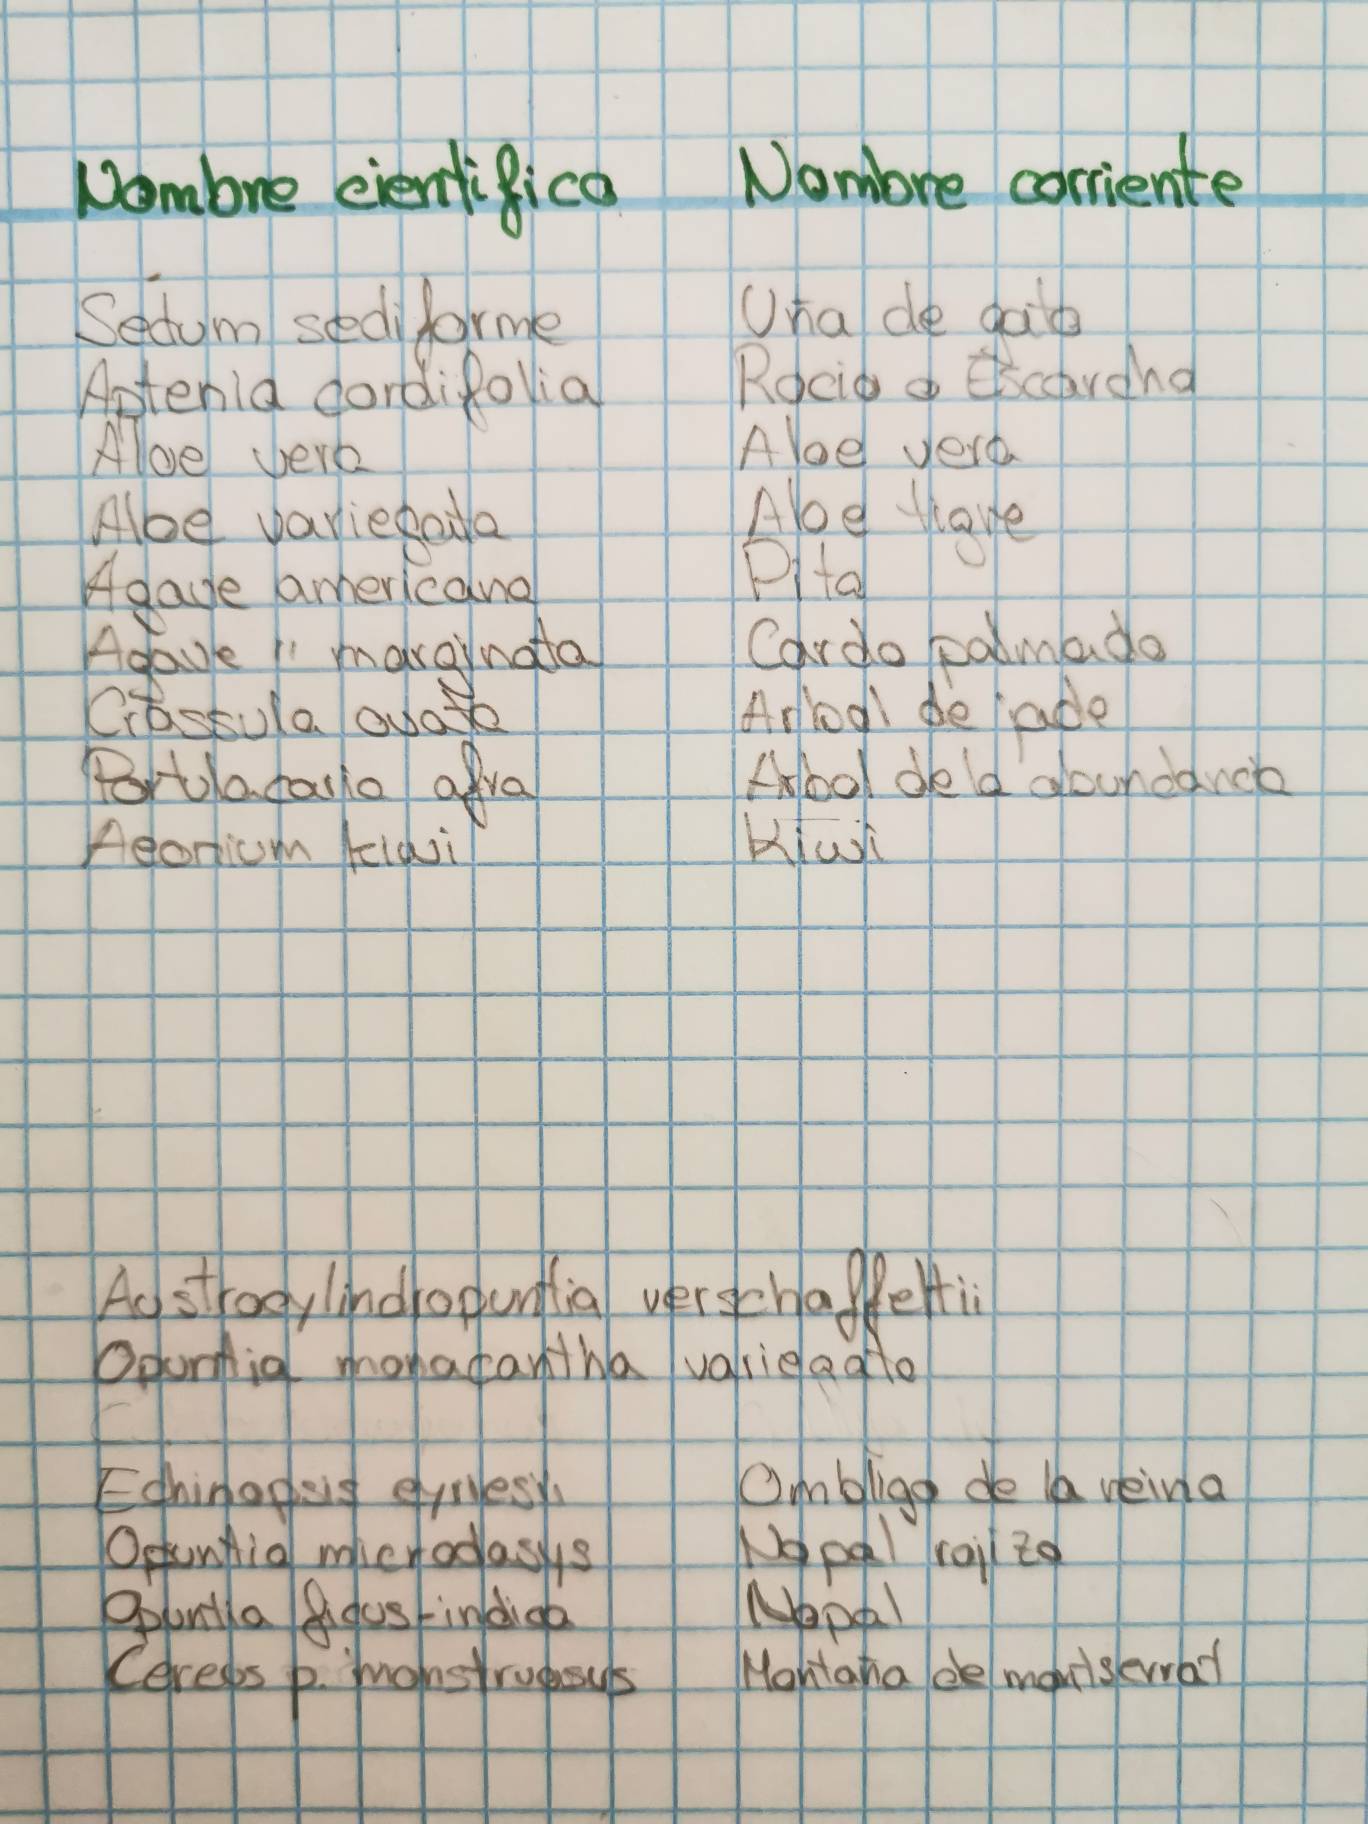 Nombre cientifico Nombre corriente
Sedum sediforme Uña de gato
Aptenia cordifolia Rocio o Escarcha
Aloe vera Aloe vera
Aloe variegata Aloe tigre
Agave americana Pita
Agave " marginata Cardo palmado
Crassula ovata Arbol de jade
Portulacaria afra Arbol de la abundancia
Aeonium kiwi Kiwi
Austrocylindropuntia verschaffeltii
Opuntia monacantha variegata
Echinopsis eyriesii Ombligo de la reina
Opuntia microdasys Nopal rojizo
Opuntia ficus-indica Nopal
Cereus p. monstruosus Montaña de montserrat